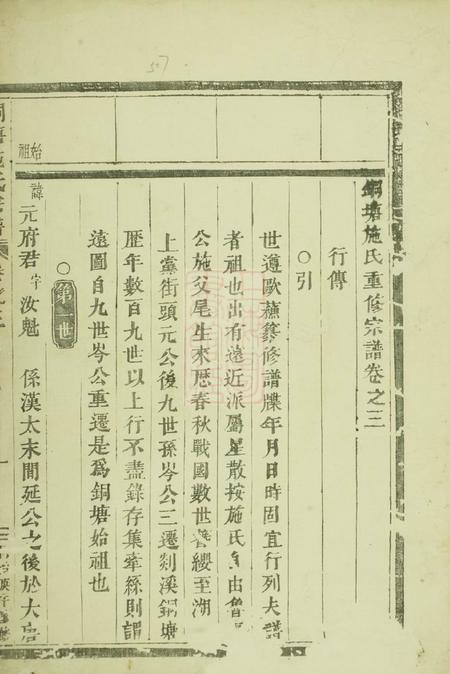 507
銅塘施氏重修宗譜卷之三
行傳
○引
世遵歐蘇纂修譜牒年月日時固宜行列夫譜
者祖也出有遠近派屬星散按施氏 由魯
公施父尾生來歷春秋戰國數世簪纓至湖
上黨街頭元公後九世孫岑公三遷剡溪銅塘
歷年數百九世以上行不盡錄存集牽絲則謂
遠圖自九世岑公重遷是爲銅塘始祖也
○第一世
始祖
諱元府君字汝魁 係漢太末間延公之後於大唐